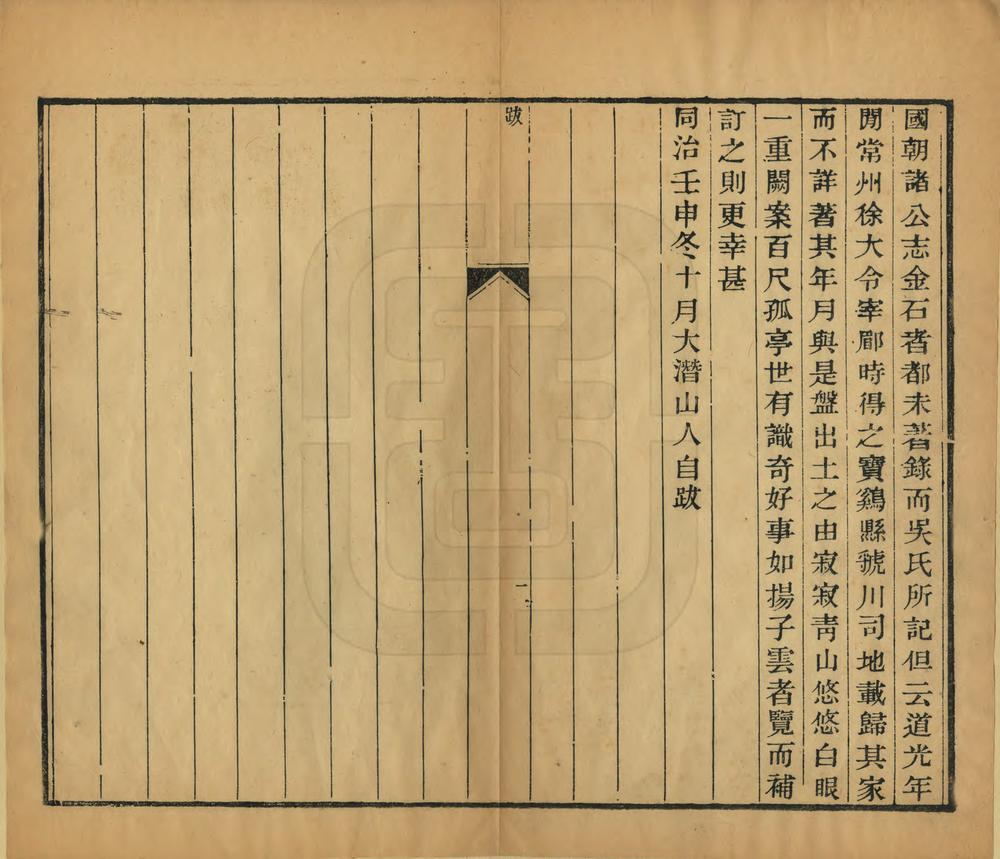 國朝諸公志金石者都未著錄而吳氏所記但云道光年
閒常州徐大令宰郿時得之寶鷄縣虢川司地載歸其家
而不詳著其年月與是盤出土之由寂寂靑山悠悠白眼
一重闕案百尺孤亭世有識奇好事如揚子雲者覽而補
訂之則更幸甚
同治壬申冬十月大潛山人自跋
跋